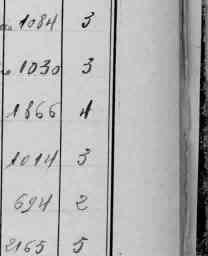 1084 3
1030 3
1866 4
1014 3
694 2
2165 5